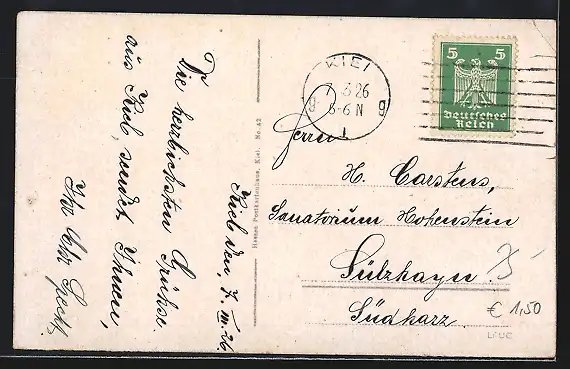 Kiel den, 7. III. 26
Die herzlichsten Grüsse
aus Kiel, sendet Ihnen,
Ihr
KIEL
7. 3. 26
5-6 N
g g
1
5 5
Deutsches
Reich
Herrn
H. Carstens,
Sanatorium Hohenstein
Sülzhayn
Südharz
€ 1,50
Hansea Postkartenhaus, Kiel. No. 42